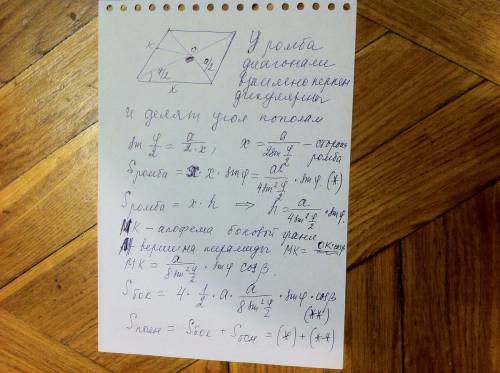 x
φ/2
x
O
a/2
У ромба
диагонали
взаимно перпен
дикулярны
и делят угол пополам
sin φ/2 = a/(2·x), x = a/(2 sin φ/2) – сторона ромба
Sромба = x · x · sin φ = a²/(4 sin² φ/2) · sin φ. (*)
Sромба = x · h ⇒ h = a/(4 sin² φ/2) · sin φ.
MK – апофема боковой грани
M вершина пирамиды MK =
MK = a/(8 sin² φ/2) · sin φ cos β.
Sбок = 4 · 1/2 · a · a/(8 sin² φ/2) · sin φ · cos β
(**)
Sполн = Sбок + Sосн = (*) + (**)